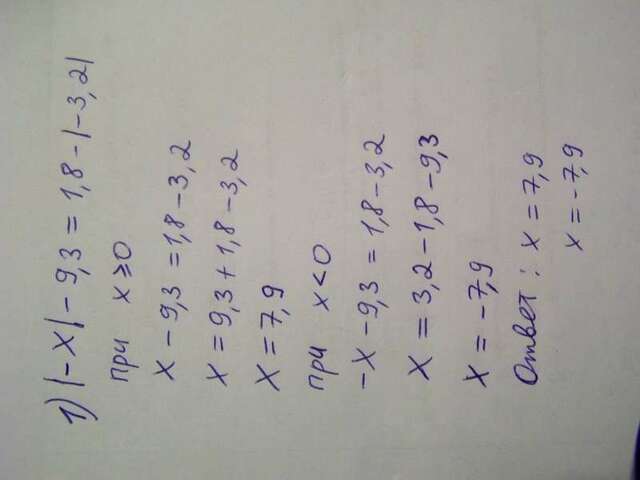 1) |-x| - 9,3 = 1,8 - |-3,2|
при x ≥ 0
x - 9,3 = 1,8 - 3,2
x = 9,3 + 1,8 - 3,2
x = 7,9
при x < 0
-x - 9,3 = 1,8 - 3,2
x = 3,2 - 1,8 - 9,3
x = -7,9
Ответ: x = 7,9
x = -7,9